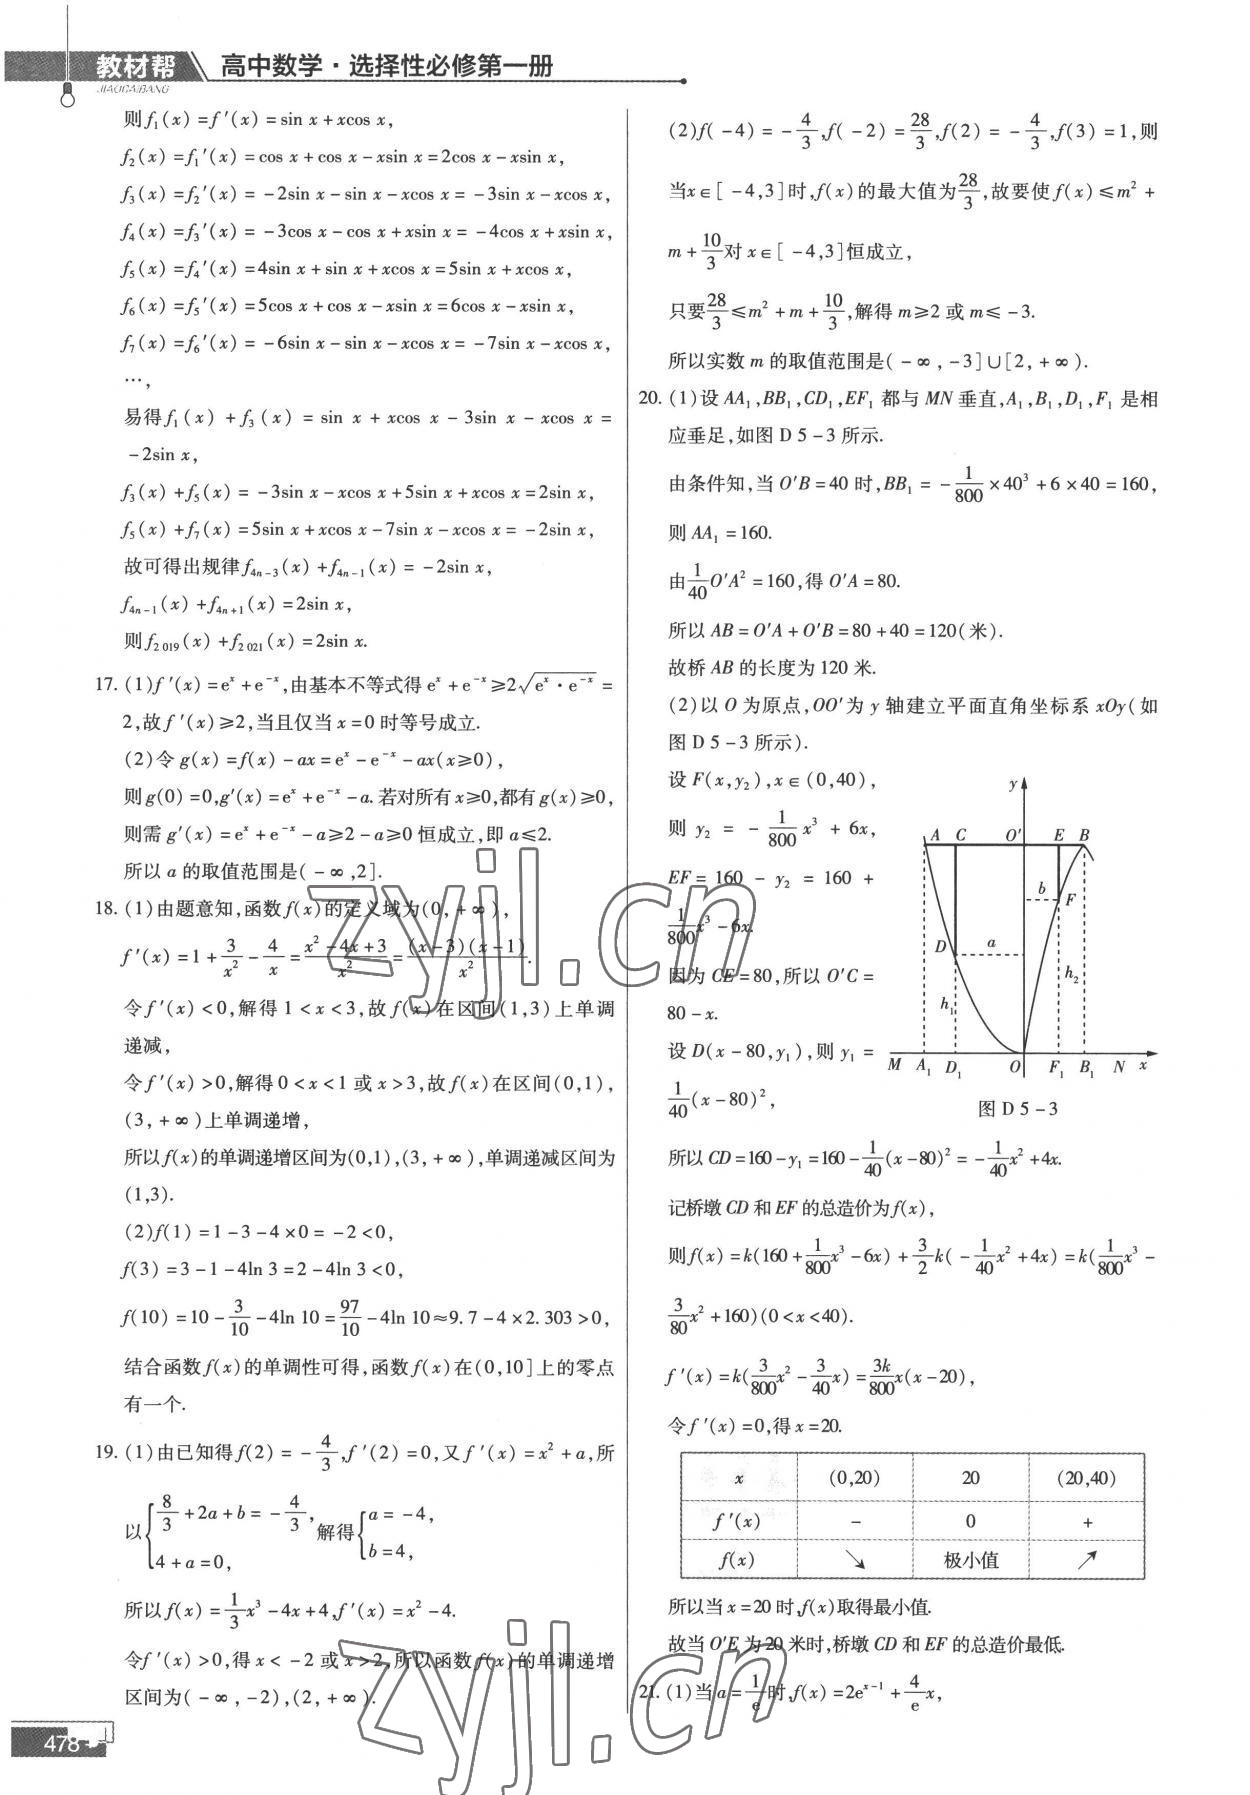 教材帮 高中数学·选择性必修第一册
JIAOCAIBANG
则f₁(x)=f′(x)=sin x+xcos x,
f₂(x)=f₁′(x)=cos x+cos x-xsin x=2cos x-xsin x,
f₃(x)=f₂′(x)=-2sin x-sin x-xcos x=-3sin x-xcos x,
f₄(x)=f₃′(x)=-3cos x-cos x+xsin x=-4cos x+xsin x,
f₅(x)=f₄′(x)=4sin x+sin x+xcos x=5sin x+xcos x,
f₆(x)=f₅′(x)=5cos x+cos x-xsin x=6cos x-xsin x,
f₇(x)=f₆′(x)=-6sin x-sin x-xcos x=-7sin x-xcos x,
…,
易得f₁(x)+f₃(x)=sin x+xcos x-3sin x-xcos x=
-2sin x,
f₃(x)+f₅(x)=-3sin x-xcos x+5sin x+xcos x=2sin x,
f₅(x)+f₇(x)=5sin x+xcos x-7sin x-xcos x=-2sin x,
故可得出规律f₄ₙ₋₃(x)+f₄ₙ₋₁(x)=-2sin x,
f₄ₙ₋₁(x)+f₄ₙ₊₁(x)=2sin x,
则f₂₀₁₉(x)+f₂₀₂₁(x)=2sin x.
17.(1)f′(x)=eˣ+e⁻ˣ,由基本不等式得eˣ+e⁻ˣ≥2√(eˣ·e⁻ˣ)=
2,故f′(x)≥2,当且仅当x=0时等号成立.
(2)令g(x)=f(x)-ax=eˣ-e⁻ˣ-ax(x≥0),
则g(0)=0,g′(x)=eˣ+e⁻ˣ-a.若对所有x≥0,都有g(x)≥0,
则需g′(x)=eˣ+e⁻ˣ-a≥2-a≥0恒成立,即a≤2.
所以a的取值范围是(-∞,2].
18.(1)由题意知,函数f(x)的定义域为(0,+∞),
f′(x)=1+3/x²-4/x=(x²-4x+3)/x²=(x-3)(x-1)/x².
令f′(x)<0,解得1<x<3,故f(x)在区间(1,3)上单调
递减,
令f′(x)>0,解得0<x<1或x>3,故f(x)在区间(0,1),
(3,+∞)上单调递增,
所以f(x)的单调递增区间为(0,1),(3,+∞),单调递减区间为
(1,3).
(2)f(1)=1-3-4×0=-2<0,
f(3)=3-1-4ln 3=2-4ln 3<0,
f(10)=10-3/10-4ln 10=97/10-4ln 10≈9.7-4×2.303>0,
结合函数f(x)的单调性可得,函数f(x)在(0,10]上的零点
有一个.
19.(1)由已知得f(2)=-4/3,f′(2)=0,又f′(x)=x²+a,所
以{8/3+2a+b=-4/3, 4+a=0, 解得{a=-4, b=4,
所以f(x)=1/3x³-4x+4,f′(x)=x²-4.
令f′(x)>0,得x<-2或x>2,所以函数f(x)的单调递增
区间为(-∞,-2),(2,+∞).
478
(2)f(-4)=-4/3,f(-2)=28/3,f(2)=-4/3,f(3)=1,则
当x∈[-4,3]时,f(x)的最大值为28/3,故要使f(x)≤m²+
m+10/3对x∈[-4,3]恒成立,
只要28/3≤m²+m+10/3,解得m≥2或m≤-3.
所以实数m的取值范围是(-∞,-3]∪[2,+∞).
20.(1)设AA₁,BB₁,CD₁,EF₁都与MN垂直,A₁,B₁,D₁,F₁是相
应垂足,如图D5-3所示.
由条件知,当O′B=40时,BB₁=-1/800×40³+6×40=160,
则AA₁=160.
由1/40O′A²=160,得O′A=80.
所以AB=O′A+O′B=80+40=120(米).
故桥AB的长度为120米.
(2)以O为原点,OO′为y轴建立平面直角坐标系xOy(如
图D5-3所示).
设F(x,y₂),x∈(0,40),
则y₂=-1/800x³+6x,
EF=160-y₂=160+
1/800x³-6x.
因为CE=80,所以O′C=
80-x.
设D(x-80,y₁),则y₁=
1/40(x-80)²,
y
A C O′ E B
b F
D a
h₁ h₂
M A₁ D₁ O F₁ B₁ N x
图D5-3
所以CD=160-y₁=160-1/40(x-80)²=-1/40x²+4x.
记桥墩CD和EF的总造价为f(x),
则f(x)=k(160+1/800x³-6x)+3/2k(-1/40x²+4x)=k(1/800x³-
3/80x²+160)(0<x<40).
f′(x)=k(3/800x²-3/40x)=3k/800x(x-20),
令f′(x)=0,得x=20.
x (0,20) 20 (20,40)
f′(x) - 0 +
f(x) ↘ 极小值 ↗
所以当x=20时,f(x)取得最小值.
故当O′E为20米时,桥墩CD和EF的总造价最低.
21.(1)当a=1/e时,f(x)=2eˣ⁻¹+4/ex,
zyjl.cn
zyjl.cn